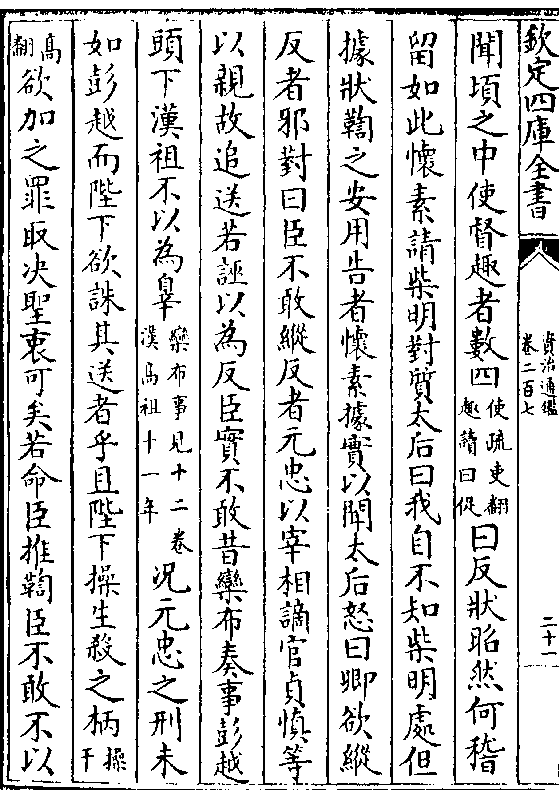 欽定四庫全書
資治通鑑
卷二百七
二十一
聞頃之中使督趣者數四使疏吏翻趣讀曰促曰反狀昭然何稽
留如此懷素請柴明對質太后曰我自不知柴明處但
據狀鞫之安用告者懷素據實以聞太后怒曰卿欲縱
反者邪對曰臣不敢縱反者元忠以宰相謫官貞慎等
以親故追送若誣以為反臣實不敢昔欒布奏事彭越
頭下漢祖不以為辠欒布事見十二卷漢高祖十一年况元忠之刑未
如彭越而陛下欲誅其送者乎且陛下操生殺之柄操千
高翻欲加之罪取决聖衷可矣若命臣推鞫臣不敢不以